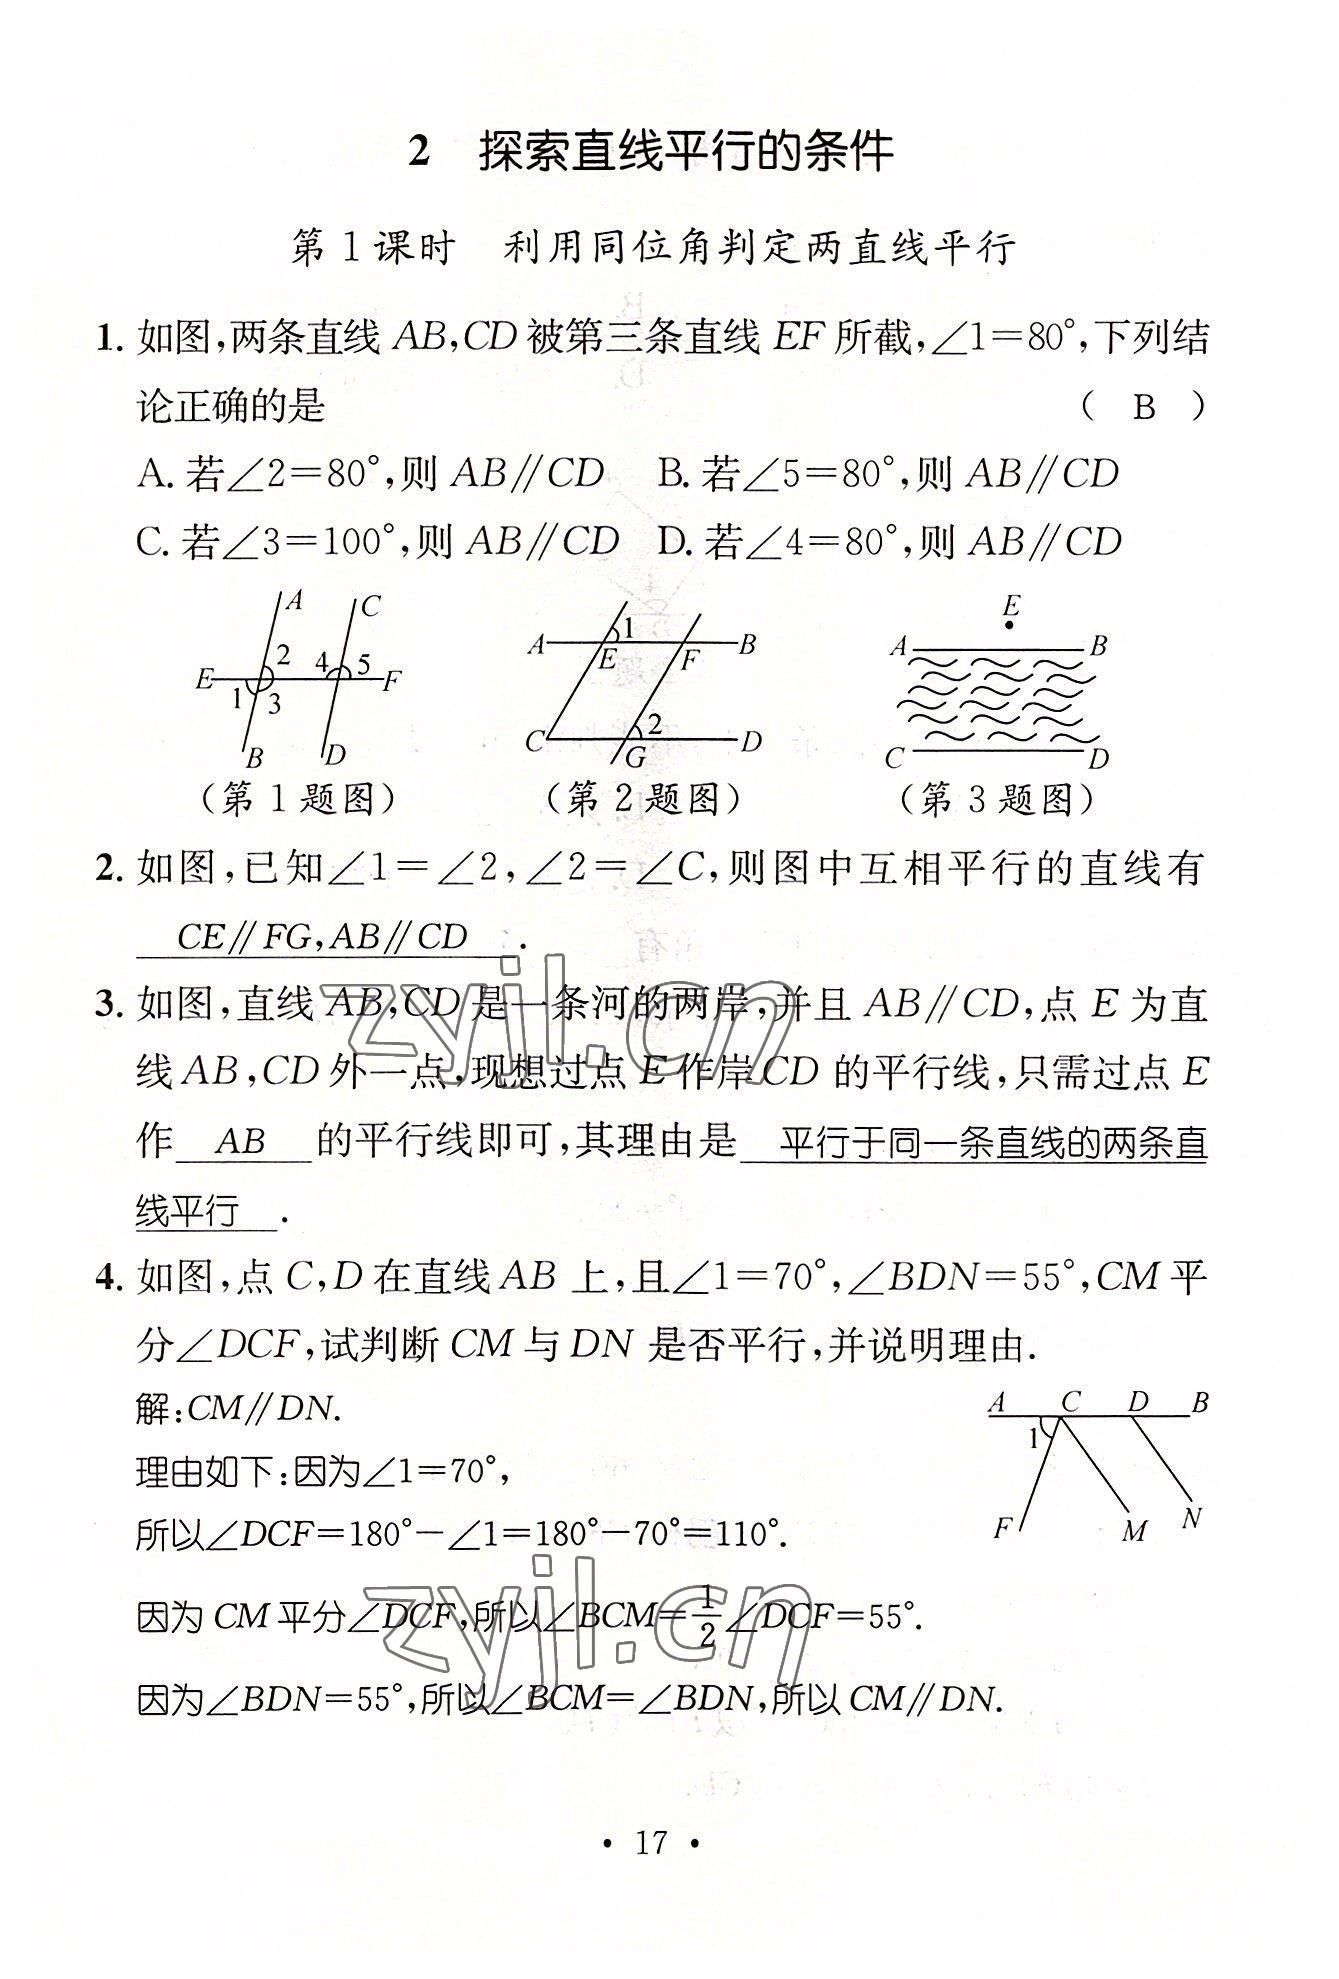 2 探索直线平行的条件
第1课时 利用同位角判定两直线平行
1. 如图,两条直线 AB,CD 被第三条直线 EF 所截,∠1=80°,下列结
论正确的是 ( B )
A. 若∠2=80°,则 AB∥CD B. 若∠5=80°,则 AB∥CD
C. 若∠3=100°,则 AB∥CD D. 若∠4=80°,则 AB∥CD
A C E F 2 4 5 1 3 B D
A B 1 E F 2 C G D
E A B C D
(第1题图) (第2题图) (第3题图)
2. 如图,已知∠1=∠2,∠2=∠C,则图中互相平行的直线有
CE∥FG,AB∥CD .
3. 如图,直线 AB,CD 是一条河的两岸,并且 AB∥CD,点 E 为直
线 AB,CD 外一点,现想过点 E 作岸 CD 的平行线,只需过点 E
作 AB 的平行线即可,其理由是 平行于同一条直线的两条直
线平行 .
4. 如图,点 C,D 在直线 AB 上,且∠1=70°,∠BDN=55°,CM 平
分∠DCF,试判断 CM 与 DN 是否平行,并说明理由.
解:CM∥DN.
理由如下:因为∠1=70°,
所以∠DCF=180°-∠1=180°-70°=110°.
因为 CM 平分∠DCF,所以∠BCM=1/2∠DCF=55°.
因为∠BDN=55°,所以∠BCM=∠BDN,所以 CM∥DN.
A C D B
1
F M N
zyjl.cn
zyjl.cn
• 17 •